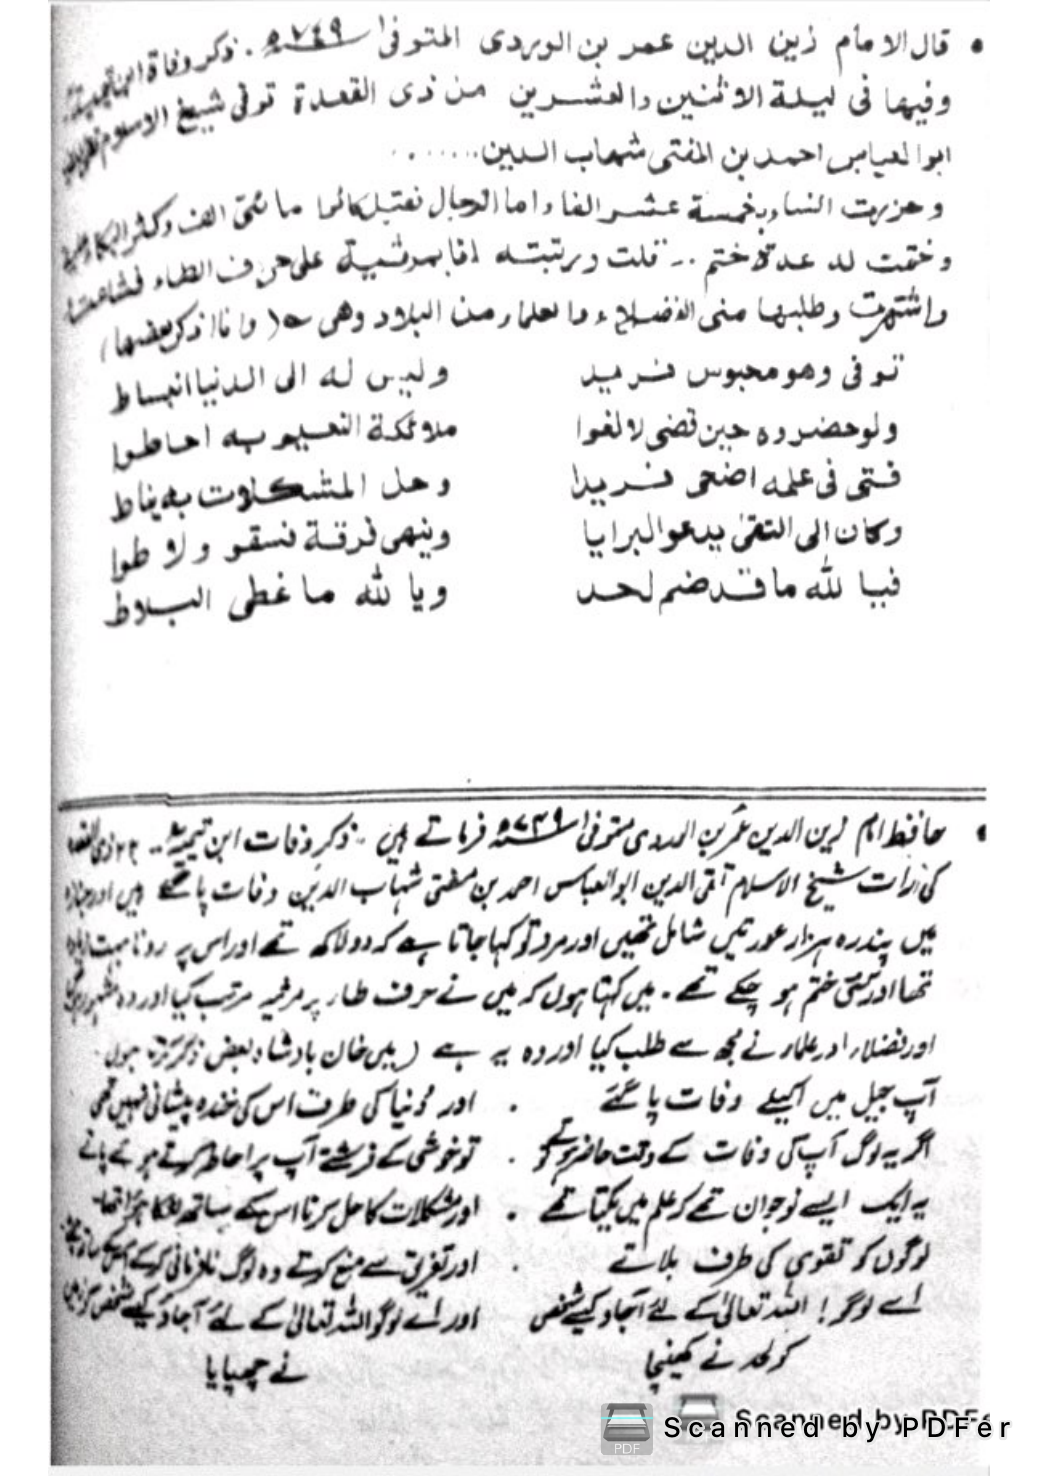 • قال الامام زین الدین عمر بن الوردی المتوفیٰ ۷۴۹ھ . ذکر وفاة ابن تیمیة
وفیها فی لیلة الاثنین والعشرین من ذی القعدة توفی شیخ الاسلام
ابو العباس احمد بن المفتی شهاب الدین......
وحزرت النساء بخمسة عشر الفا واما الرجال فقیل کانوا مائتی الف وکثر البکاء علیه
وختمت له عدة ختم .. قلت ورتبته انا بمرثیة علی حرف الطاء فشاعت
واشتهرت وطلبها منی الفضلاء والعلماء من البلاد وهی ے (وانا اذکر بعضها)
توفی وهو محبوس فرید ولیس له الی الدنیا انبساط
ولو حضروه حین قضی لالفوا ملائکة النعیم به احاطوا
فتی فی علمه اضحی فریدا وحل المشکلات به یناط
وکان الی التقیٰ یدعو البرایا وینهی فرقة فسقو ولاطوا
فیا لله ما قد ضم لحد ویا لله ما غطی البلاط
• حافظ امام زین الدین عمر بن الوردی متوفیٰ ۷۴۹ھ فرماتے ہیں .. ذکر وفات ابن تیمیہ .. ۲۲ ذی القعدہ
کی رات شیخ الاسلام تقی الدین ابوالعباس احمد بن مفتی شہاب الدین وفات پاگئے ہیں اور جنازہ
میں پندرہ ہزار عورتیں شامل تھیں اور مرد تو کہا جاتا ہے کہ دو لاکھ تھے اور اس پر رونا بہت زیادہ
تھا اور کئی ختم ہو چکے تھے . میں کہتا ہوں کہ میں نے حرف طار پر مرثیہ مرتب کیا اور وہ مشہور
اور فضلاء اور علماء نے مجھ سے طلب کیا اور وہ یہ ہے (میں خان بادشاہ بعض ذکر کرتا ہوں
آپ جیل میں اکیلے وفات پاگئے . اور دُنیا کی طرف اس کی خندہ پیشانی نہیں تھی
اگر یہ لوگ آپ کی وفات کے وقت حاضر ہوتے تو . تو خوشی کے فرشتے آپ پر احاطہ کرتے ہوئے پاتے
یہ ایک ایسے نوجوان تھے کہ علم میں یکتا تھے . اور مشکلات کا حل کرنا اس کے ساتھ لٹکا ہوا تھا
لوگوں کو تقوی کی طرف بلاتے . اور تفریق سے منع کرتے وہ لوگ نافرمانی کرکے
اے لوگو! اللہ تعالیٰ کے لئے آجاؤ کیسے شخص اور اے لوگو اللہ تعالیٰ کے لئے آجاؤ کیسے شخص کو
کو لحد نے کھینچا نے چھپایا
Scanned by PDFer
Scanned by PDFer